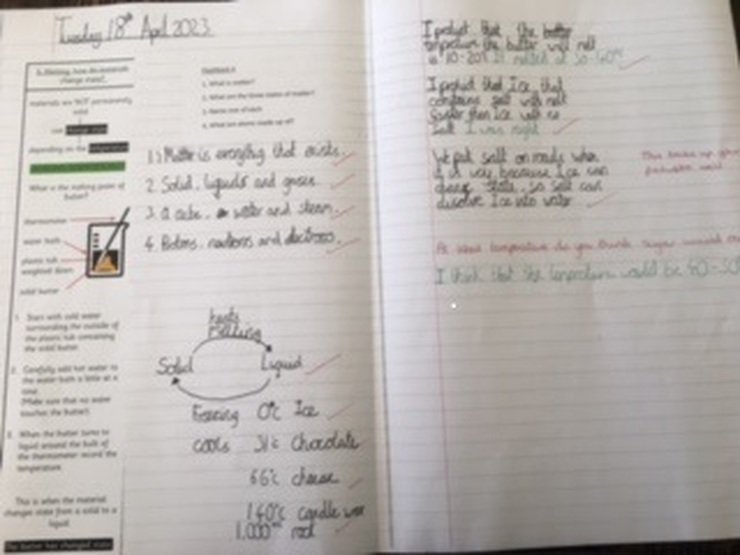 Tuesday 18th April 2023
materials are NOT permanently
solid
can change state
depending on the temperature
What is the melting point of
butter?
thermometer
water bath
plastic tub
weighted down
solid butter
1. Starts with cold water
surrounding the outside of
the plastic tub containing
the solid butter.
2. Carefully add hot water to
the water bath a little at a
time.
(Make sure that no water
touches the butter).
3. When the butter turns to
liquid around the bulb of
the thermometer record the
temperature.
This is when the material
changes state from a solid to a
liquid.
The butter has changed state
Questions
1. What is matter?
2. What are the three states of matter?
3. Name one of each
4. What are atoms made up of?
1.) Matter is everything that exists.
2. Solid, liquids and gases.
3. a cube, water and steam.
4. Protons, neutrons and electrons.
heats
Melting
Solid
Liquid
Freezing
cools
0°c Ice
31°c Chocolate
66°c cheese
140°c candle wax
1,000°c rock
I predict that the
temperature the butter will melt
is 10-20°c It melted at 30-40°c
I predict that Ice that
contains salt will melt
faster than Ice with no
Salt I was right
We put salt on roads when
it is icy because Ice can
change State, so salt can
disolve Ice into water
At what temperature do you think sugar would
I think that the temperature would be 40-50